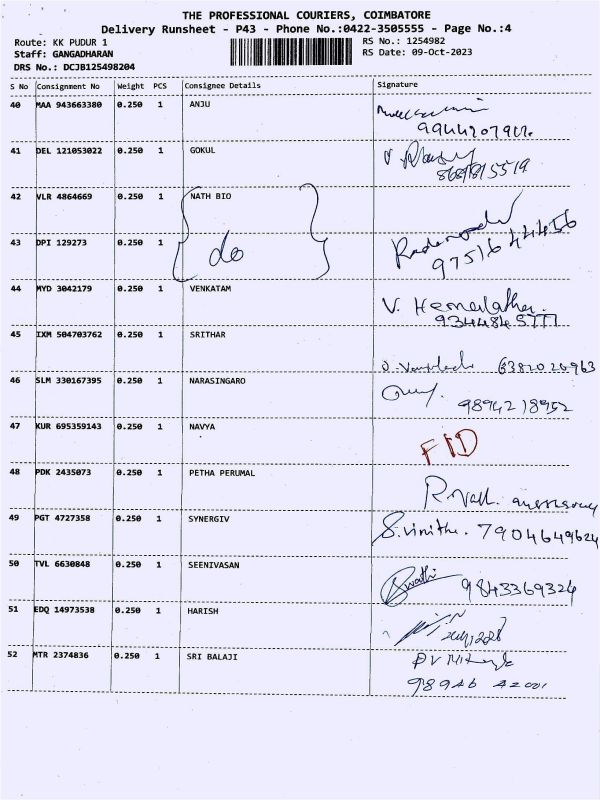 THE PROFESSIONAL COURIERS, COIMBATORE
Delivery Runsheet - P43 - Phone No.:0422-3505555 - Page No.:4
Route: KK PUDUR 1 RS No.: 1254982
Staff: GANGADHARAN RS Date: 09-Oct-2023
DRS No.: DCJB125498204
S No Consignment No Weight PCS Consignee Details Signature
40 MAA 943663380 0.250 1 ANJU
41 DEL 121053022 0.250 1 GOKUL
42 VLR 4864669 0.250 1 NATH BIO
do
43 DPI 129273 0.250 1 97516 44456
44 MYD 3042179 0.250 1 VENKATAM V. Hemalatha.
45 IXM 504703762 0.250 1 SRITHAR 6382026963
46 SLM 330167395 0.250 1 NARASINGARO
9894218952
47 KUR 695359143 0.250 1 NAVYA FID
48 PDK 2435073 0.250 1 PETHA PERUMAL
49 PGT 4727358 0.250 1 SYNERGIV S. Vinitha. 7904649624
50 TVL 6630848 0.250 1 SEENIVASAN Swathi 9843369324
51 EDQ 14973538 0.250 1 HARISH
52 MTR 2374836 0.250 1 SRI BALAJI